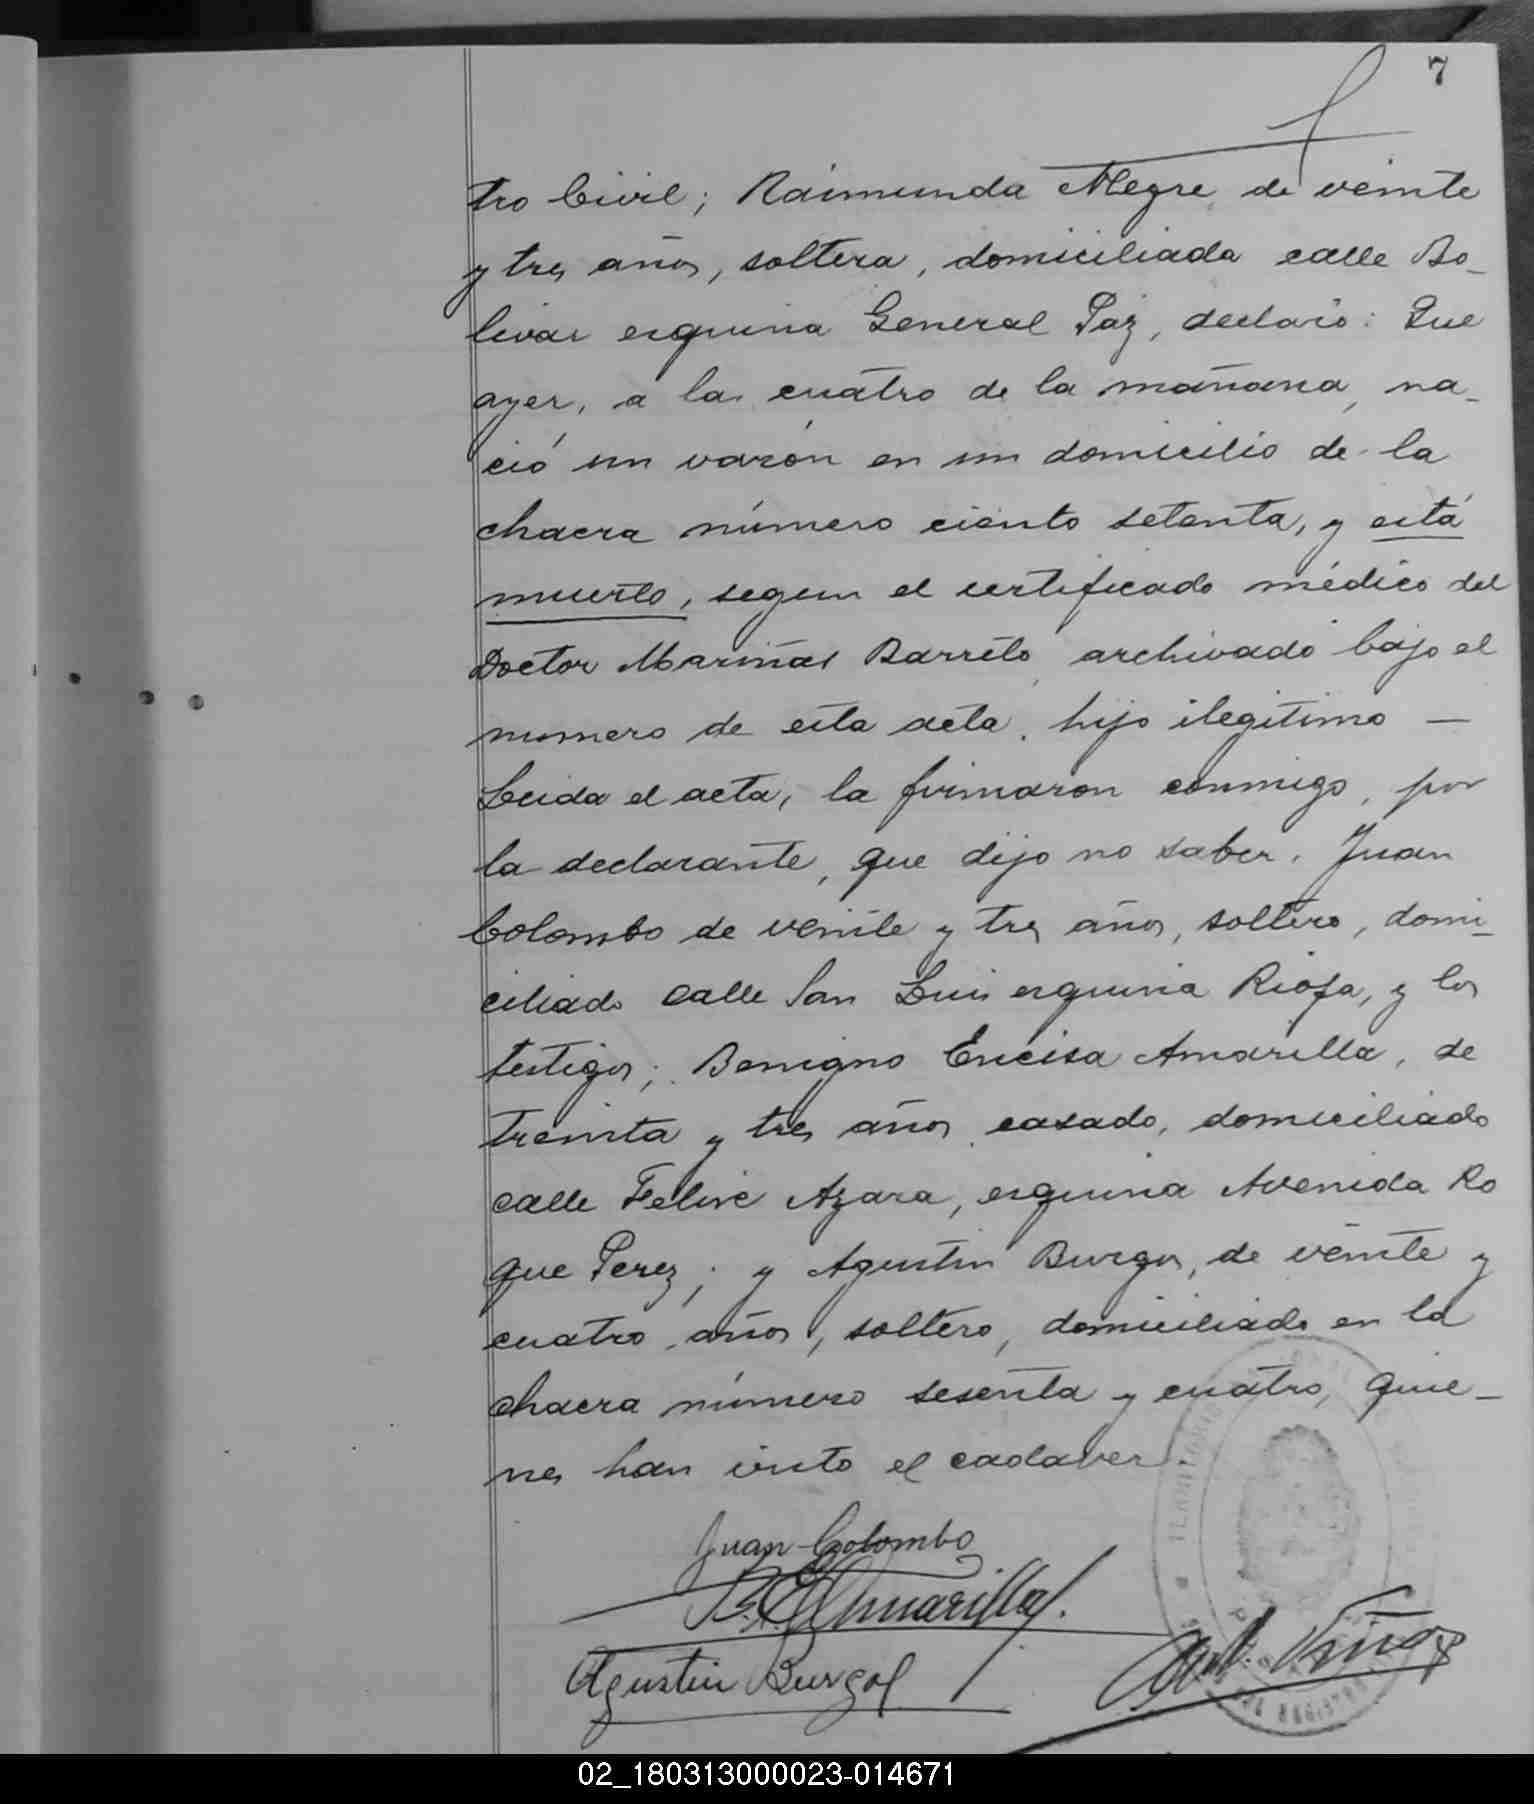 7
tro Civil; Raimunda Alegre de veinte
y tres años, soltera, domiciliada calle Bo-
livar esquina General Paz, declaró: Que
ayer, a las cuatro de la mañana, na-
ció un varón en un domicilio de la
chacra número ciento setenta, y está
muerto, segun el certificado médico del
Doctor Mariñas Barreto archivado bajo el
numero de esta acta, hijo ilegitimo —
Leida el acta, la firmaron conmigo, por
la declarante, que dijo no saber. Juan
Colombo de veinte y tres años, soltero, domi-
ciliado calle San Luis esquina Rioja, y los
testigos; Benigno Encisa Amarilla, de
treinta y tres años casado, domiciliado
calle Felix Azara, esquina Avenida Ro
que Perez; y Agustin Burgos, de veinte y
cuatro años, soltero, domiciliado en la
chacra número sesenta y cuatro, quie-
nes han visto el cadaver.
Juan Colombo
B. E. Amarilla.
Agustin Burgos
02_180313000023-014671